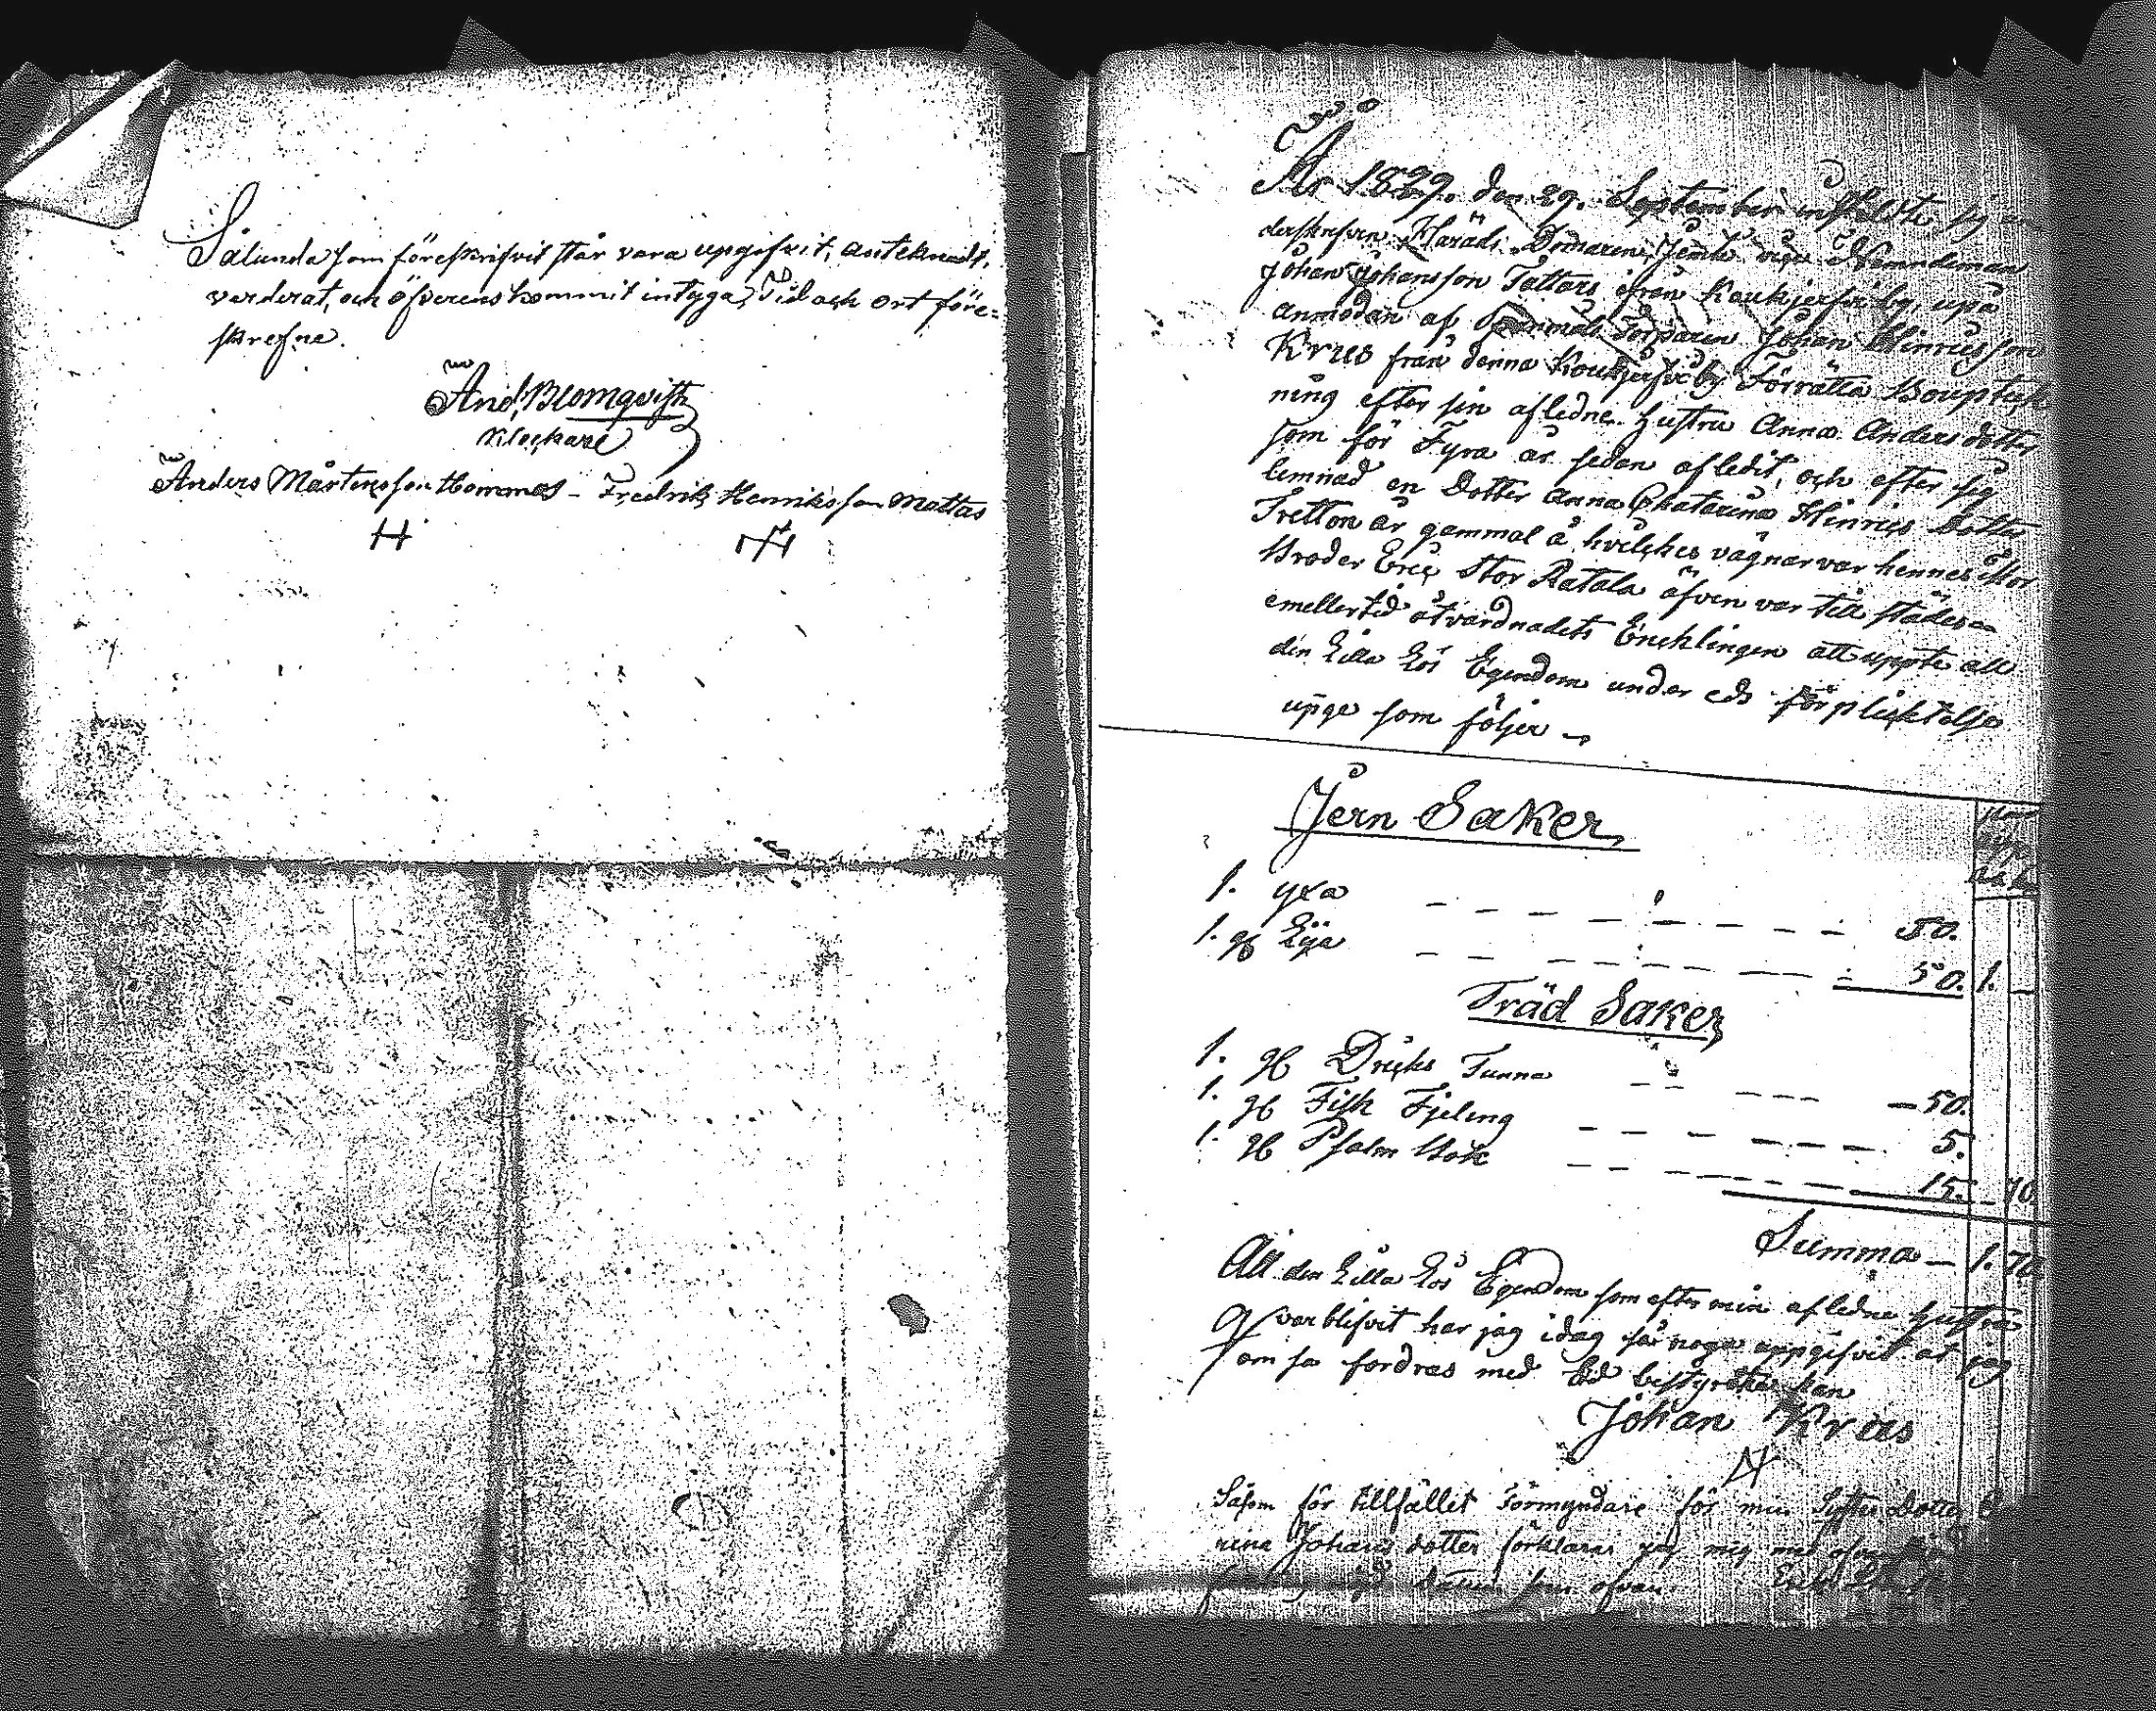 Sålunda som föreskrifvit står vara upgifvit, anteknadt,
värderat, och öfverenskommit intyga, Tid och ort före=
skrefne.
And, Blomqvist
Klockare
Anders Mårtensson Hommas – Fredrik Henriksson Mattas
År 1829. den 29. September instälte sig un
derskrefven Härads Domaren Jemte Nemndeman
Johan Johansson Tattars ifrån Koukjerfvi by, uppå
anmodan af Torparen Johan Hinricsson
Krus från denna Koukjerfvi by Förrätta Bouptek
ning efter sin afledne hustru Anna Andersdotter
som för Fyra år sedan afledit, och efter sig
lemnad en Dotter Anna Chatarina Hinrics Dotter
Tretton år gammal å hvilckes vägnar var hennes Mor
Broder Eric Stor Ratala äfven var till städes
emellertid åtvardnades Encklingen att uppte all
den Lilla Lös Egendom under eds förplicktelse
upge som följer
Jern Saker
1. yxa 50.
1. D:o Lija 50. 1. –
Träd Saker
1. D:o Dricks Tunna – 50.
1. D:o Fisk Fjeling 5.
1. D:o Psalm Bok 15. – 70
Summa – 1. 70
All den Lilla Lös Egendom som efter min afledne hustru
qvarblifvit har jag idag så noga uppgifvit at jag
om så fordras med Ed bestyrcka kan
Johan Krus
Såsom för tillfället Förmyndare för min Syster Dotter
rina Johans dotter förklarar jag mig med
datum som ofvan.